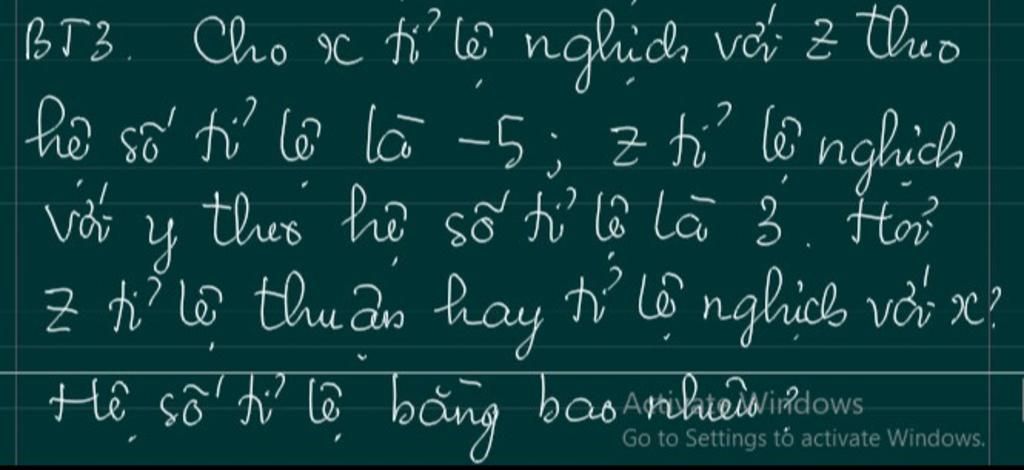 BT3. Cho x tỉ lệ nghịch với z theo
hệ số tỉ lệ là -5; z tỉ lệ nghịch
với y theo hệ số tỉ lệ là 3. Hỏi
z tỉ lệ thuận hay tỉ lệ nghịch với x?
Hệ số tỉ lệ bằng bao nhiêu?
Activate Windows
Go to Settings to activate Windows.